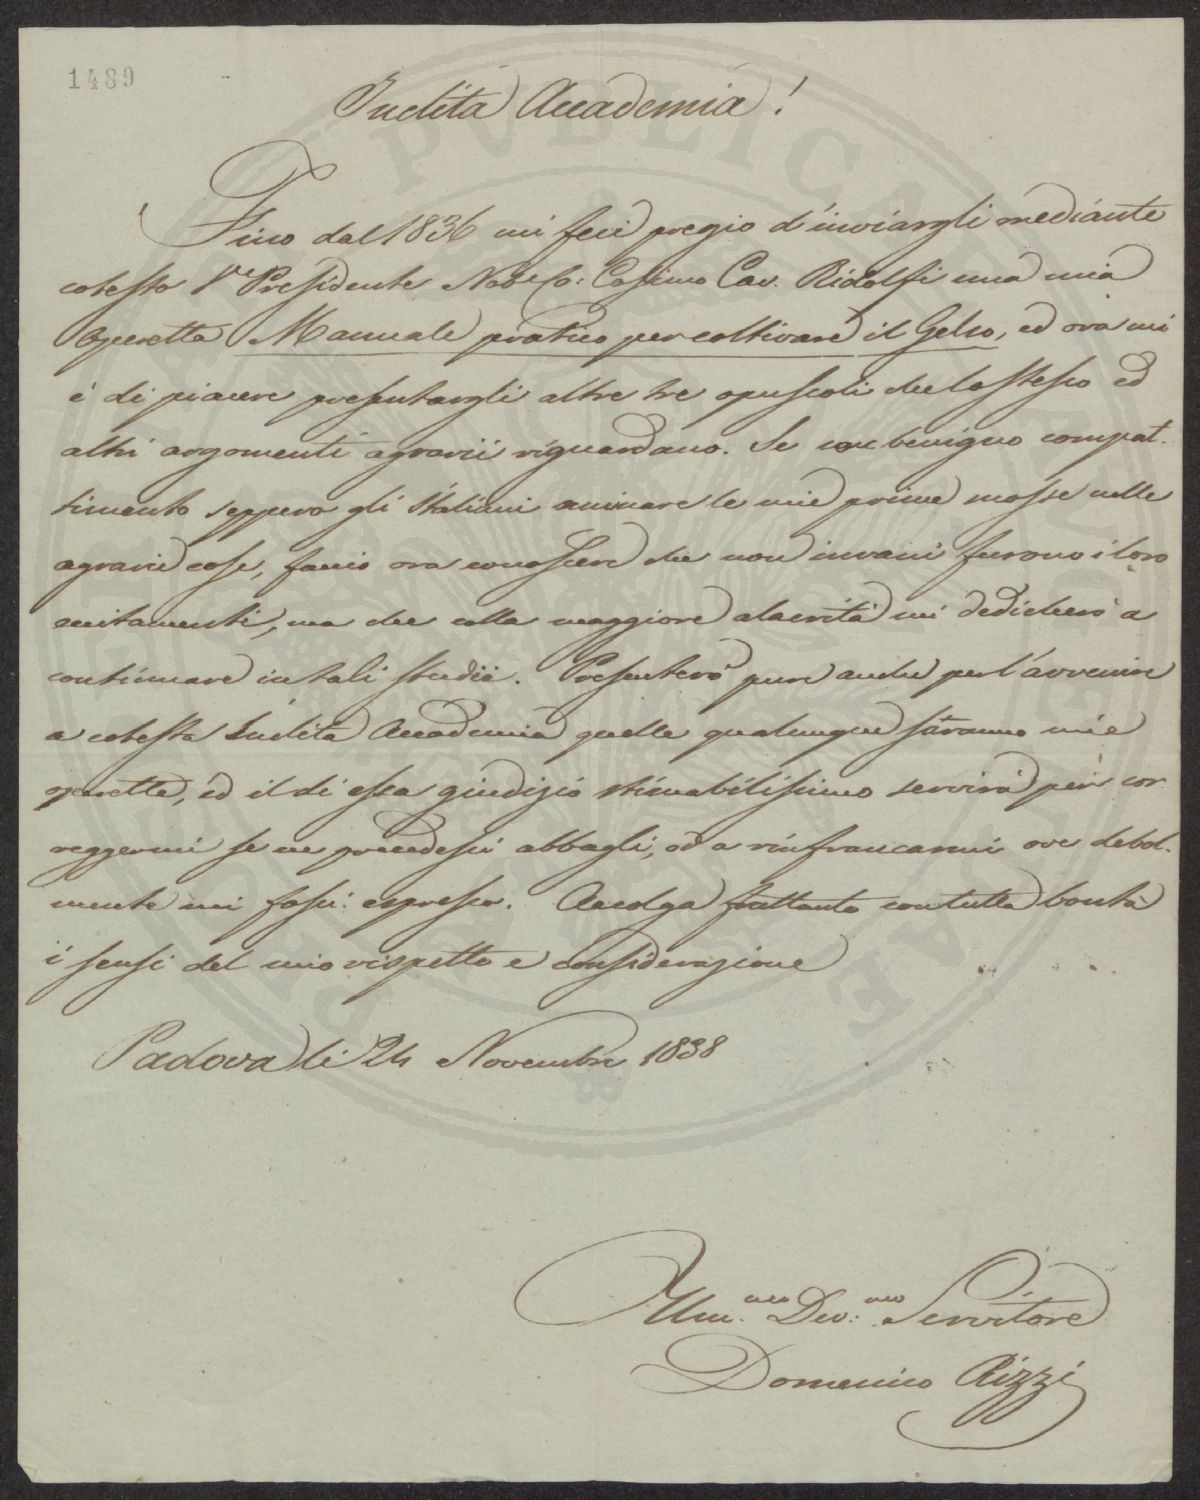 1489
Inclita Accademia!
Fino dal 1836 mi feci pregio d'inviargli mediante
cotesto Vᵉ Presidente Nobᵉ Co: Cosimo Cav. Ridolfi una mia
Operetta Manuale pratico per coltivare il Gelso, ed ora mi
è di piacere presentargli altre tre opuscoli che lo stesso ed
altri argomenti agrarii riguardano. Se con benigno compat-
timento seppero gli Italiani animare le mie prime mosse nelle
agrarie cose, faccio ora conoscere che non invani furono i loro
eccitamenti, ma che colla maggiore alacrità mi dedicherò a
continuare in tali studii. Presenterò pure anche per l'avvenire
a cotesta Inclita Accademia quelle qualunque saranno mie
operette, ed il di essa giudizio stimabilissimo servirà per cor-
reggermi se ne prendessi abbagli, od a rinfrancarmi ove debol-
mente mi fossi espresso. Accolga frattanto con tutta bontà
i sensi del mio rispetto e considerazione
Padova li 24 Novembre 1838
Umᵐᵒ. Dev:ᵐᵒ Servitore
Domenico Rizzi
PVBLICAE